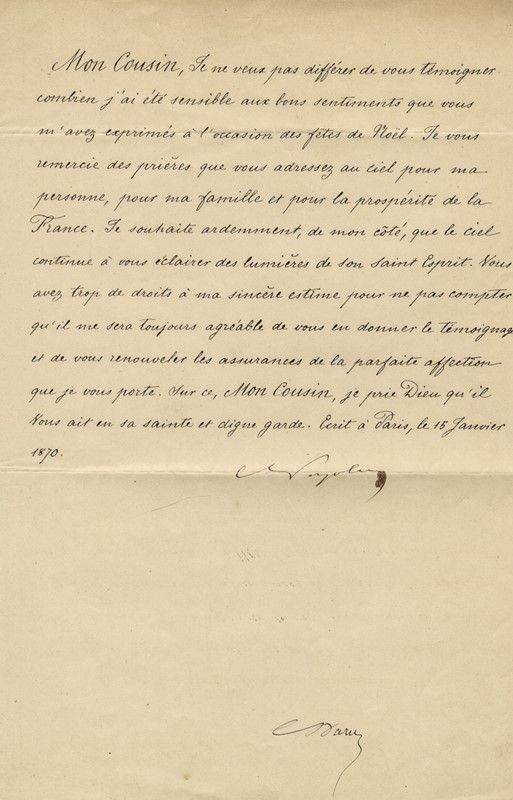 Mon Cousin, Je ne veux pas différer de vous témoigner
combien j'ai été sensible aux bons sentiments que vous
m'avez exprimés à l'occasion des fêtes de Noël. Je vous
remercie des prières que vous adressez au ciel pour ma
personne, pour ma famille et pour la prospérité de la
France. Je souhaite ardemment, de mon côté, que le ciel
continue à vous éclairer des lumières de son Saint Esprit. Vous
avez trop de droits à ma sincère estime pour ne pas compter
qu'il me sera toujours agréable de vous en donner le témoignag
et de vous renouveler les assurances de la parfaite affection
que je vous porte. Sur ce, Mon Cousin, je prie Dieu qu'il
Vous ait en sa sainte et digne garde. Ecrit à Paris, le 15 Janvier
1870.
Napoléon
Daru